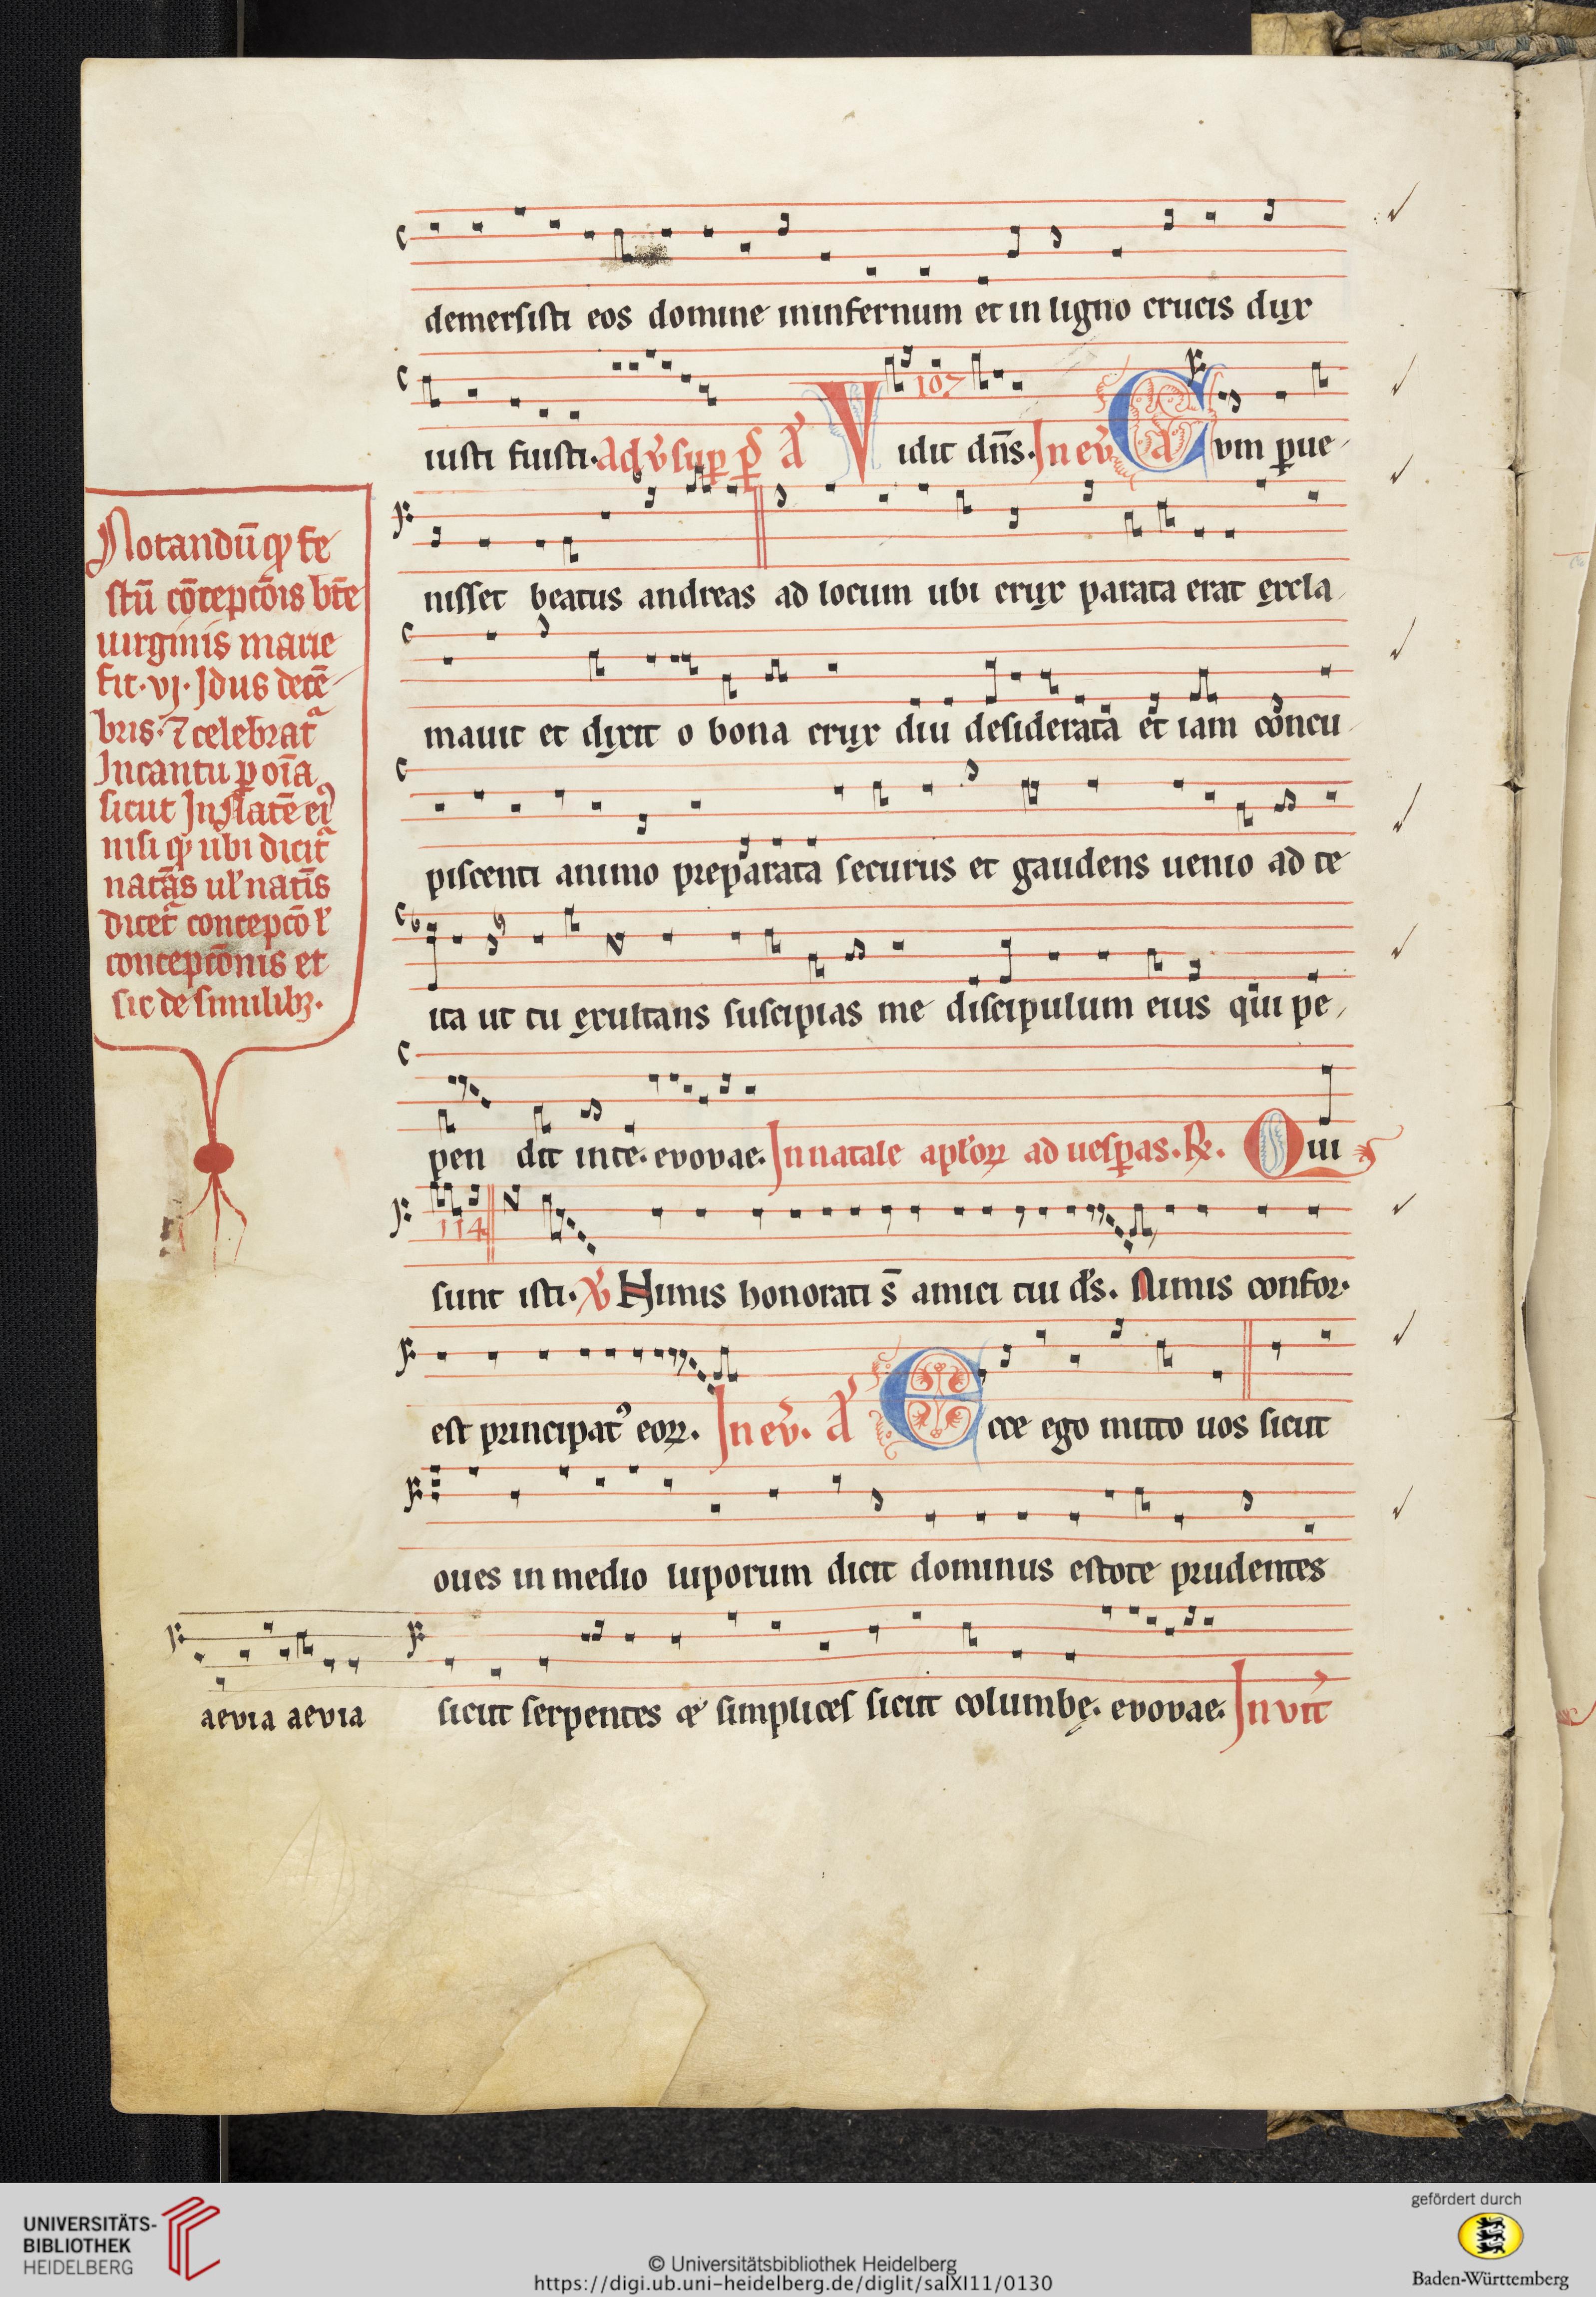 demersisti eos domine in infernum et in ligno crucis dux
iusti fuisti. Ad v̄ sup̄ p̄s a͞ Vidit dn̄s. In ev̄ a͞ Cvm ꝑue
107
nisset beatus andreas ad locum ubi crux parata erat excla
mauit et dixit o bona crux diu desiderata et iam concu
piscenti animo preparata securus et gaudens uenio ad te
ita ut tu exultans suscipias me discipulum eius qui pe
pen dit in te. evovae. In natale apl'oꝝ ad uesꝑas. ℟. Qui
114
sunt isti. ℣ Nimis honorati s̄ amici tui d's. Nimis confor.
est principat᾿ eoꝝ. In ev̄. a͞ Ecce ego mitto uos sicut
oues in medio luporum dicit dominus estote prudentes
sicut serpentes & simplices sicut columbę. evovae. Invit̄
aevia aevia
Notandū qꝫ fe
stū cōceptōis bt̄e
uirginis marie
fit. vj. Idus decē
bris. ⁊ celebrat᷑
In cantu ꝑ oīa
sicut In
nisi qꝫ ubi dicit᷑
natāˀs ul' natīs
dicet᷑ concepco l'
conceptōnis et
sic de similibꝫ.
UNIVERSITÄTS-
BIBLIOTHEK
HEIDELBERG
© Universitätsbibliothek Heidelberg
https://digi.ub.uni-heidelberg.de/diglit/salXI11/0130
gefördert durch
Baden-Württemberg